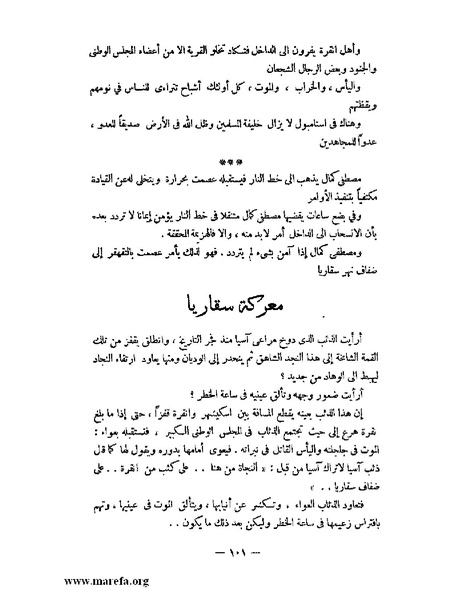 وأهل انقرة يفرون الى الداخل فتكاد تخلو القرية الا من أعضاء المجلس الوطنى
والجنود وبعض الرجال الشجعان
واليأس ، والخراب ، والموت ، كل أولئك أشباح تتراءى للناس فى نومهم
ويقظتهم
وهناك فى استامبول لا يزال خليفة المسلمين وظل الله فى الأرض صديقاً للعدو ،
عدواً للمجاهدين
***
مصطفى كمال يذهب الى خط النار فيستقبله عصمت بحرارة ويتخلى له عن القيادة
مكتفياً بتنفيذ الأوامر
وفى بضع ساعات يقضيها مصطفى كمال متنقلا فى خط النار يؤمن إيمانا لا تردد بعده
بأن الانسحاب الى الداخل أمر لا بد منه ، والا فالهزيمة المحققة .
ومصطفى كمال إذا آمن بشىء لم يتردد . فهو لذلك يأمر عصمت بالتقهقر إلى
ضفاف نهر سقاريا
معركة سقاريا
أرأيت الذئب الذى دوخ مراعى آسيا منذ فجر التاريخ ، وانطلق يقفز من تلك
القمة الشامخة إلى هذا النجد الشاهق ثم ينحدر إلى الوديان ومنها يعاود ارتقاء النجاد
ليهبط الى الوهاد من جديد ؟
أرأيت ضمور وجهه وتألق عينيه فى ساعة الخطر ؟
إن هذا الذئب بعينه يقطع المسافة بين اسكيشهر وانقرة قفزاً ، حتى إذا ما بلغ
نقرة هرع إلى حيث تجتمع الذئاب فى المجلس الوطنى الكبير ، فتستقبله بعواء :
الموت فى جلجلته واليأس القاتل فى نبراته . فيعوى أمامها بدوره ويقول لها كما قال
ذئب آسيا لاتراك آسيا من قبل : « النجاة من هنا . . على كثب من انقرة . . على
ضفاف سقاريا . . »
فتعاود الذئاب العواء . وتسكشر عن أنيابها ، ويتألق الموت فى عينيها ، وتهم
بافتراس زعيمها فى ساعة الخطر وليكن بعد ذلك ما يكون . .
— ١٠١ —
www.marefa.org